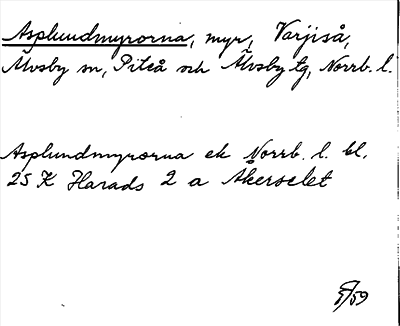 Asplundmyrorna, myr, Varjiså,
Älvsby sn, Piteå och Älvsby tg, Norrb. l.
Asplundmyrorna ek Norrb. l. bl.
25 K Harads 2 a Akerselet
/59